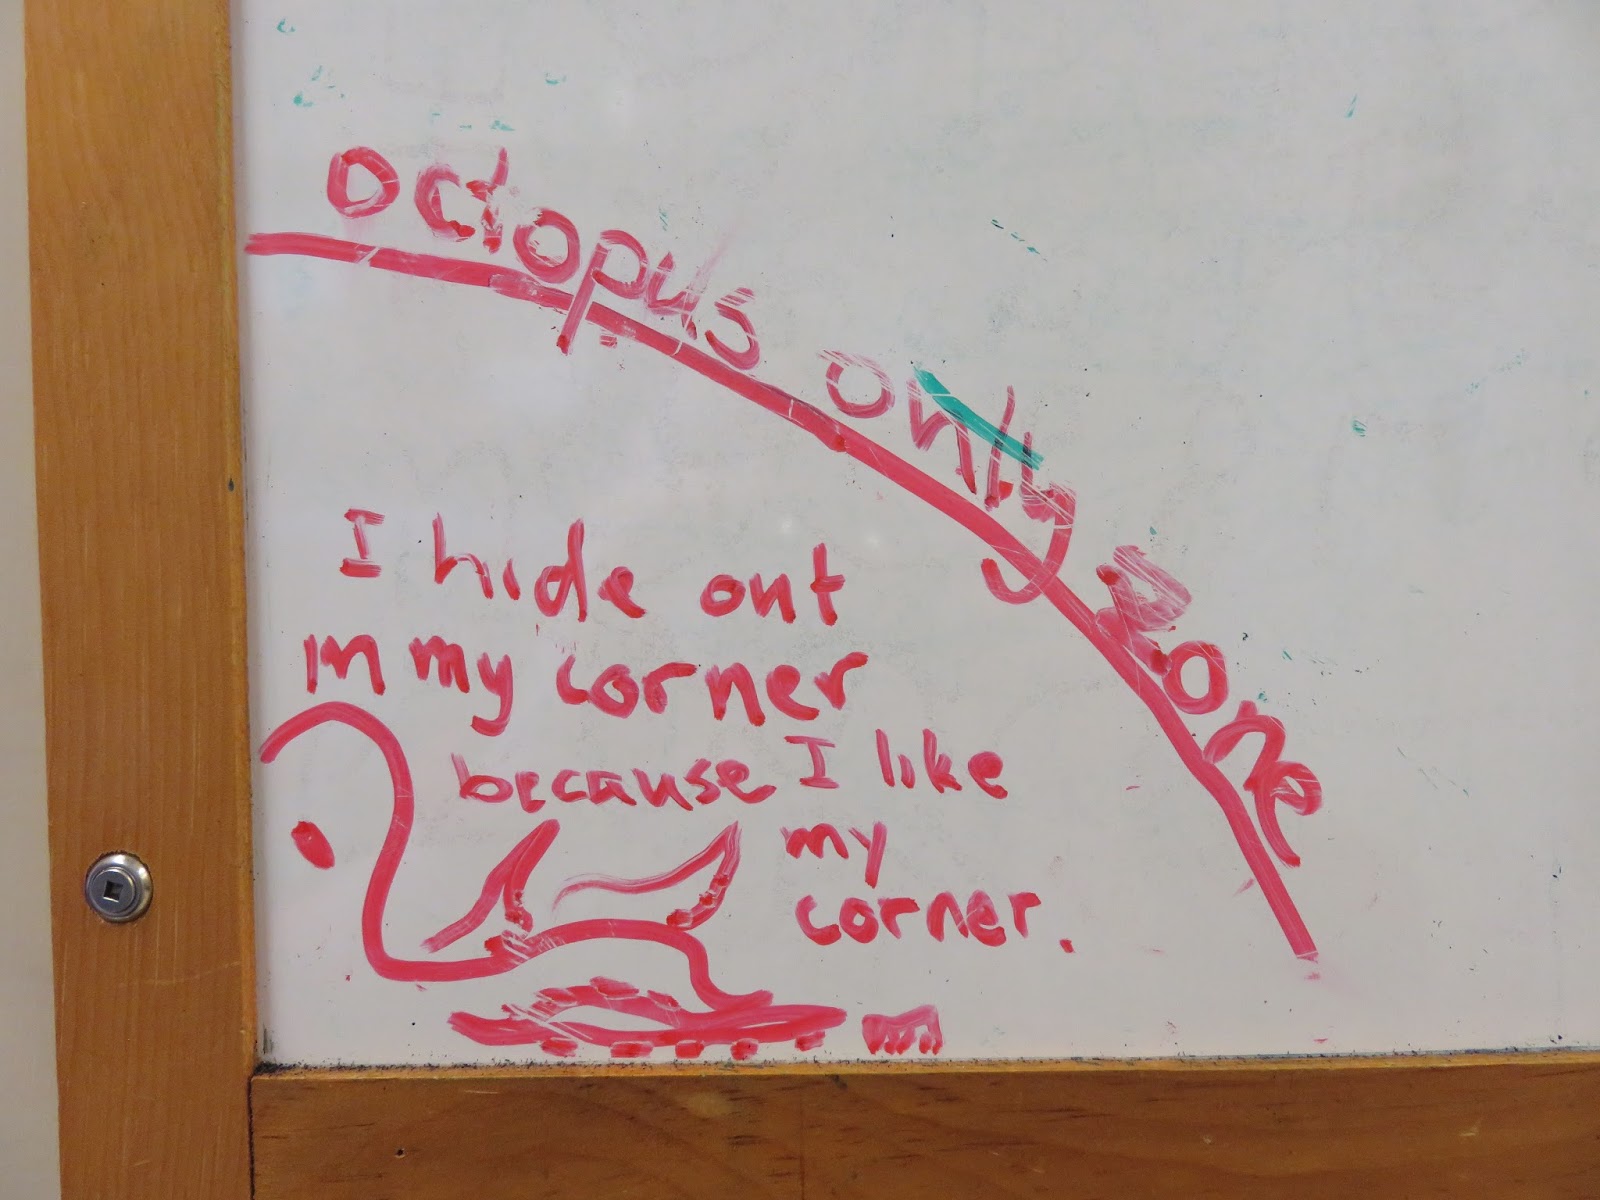 octopus only zone
I hide out
in my corner
because I like
my
corner.